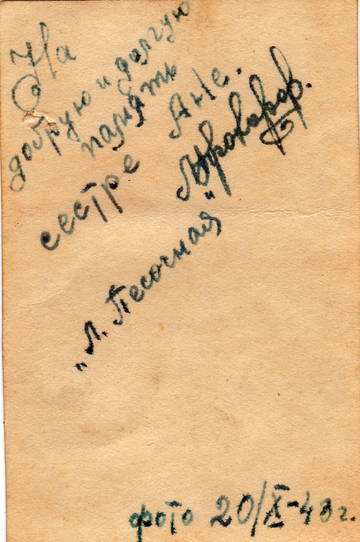 На
добрую и долгую
память
сестре Ане.
„Л. Песочная"
фото 20/X-43 г.